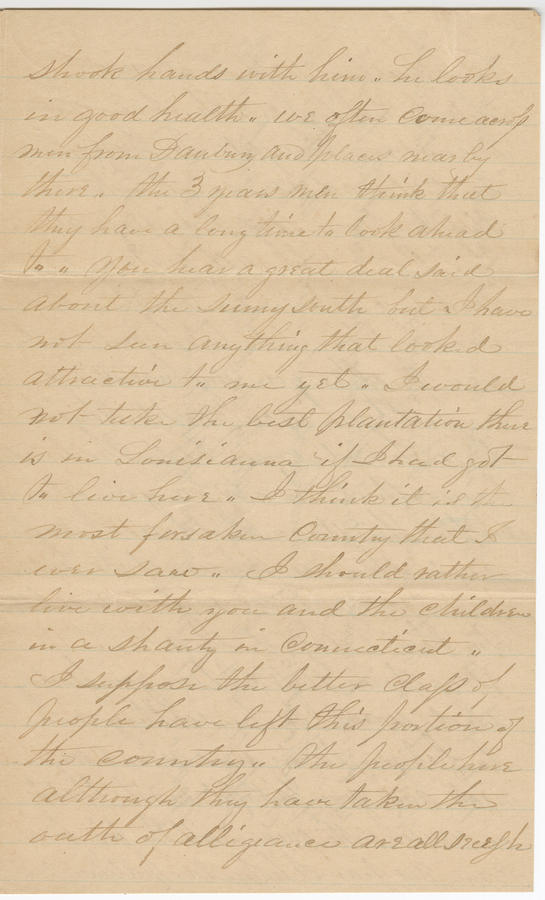 shook hands with him,, he looks
in good health,, we often come across
men from Danbury and places near by
there,, the 3 years men think that
they have a long time to look ahead
to,, You hear a great deal said
about the sunny south but I have
not seen anything that looked
attractive to me yet,, I would
not take the best plantation there
is in Louisianna if I had got
to live here,, I think it is the
most forsaken country that I
ever saw,, I should rather
live with you and the children
in a shanty in Connecticut,,
I suppose the better class of
people have left this portion of
the country,, the people here
although they have taken the
outh of alligeance are all secesh